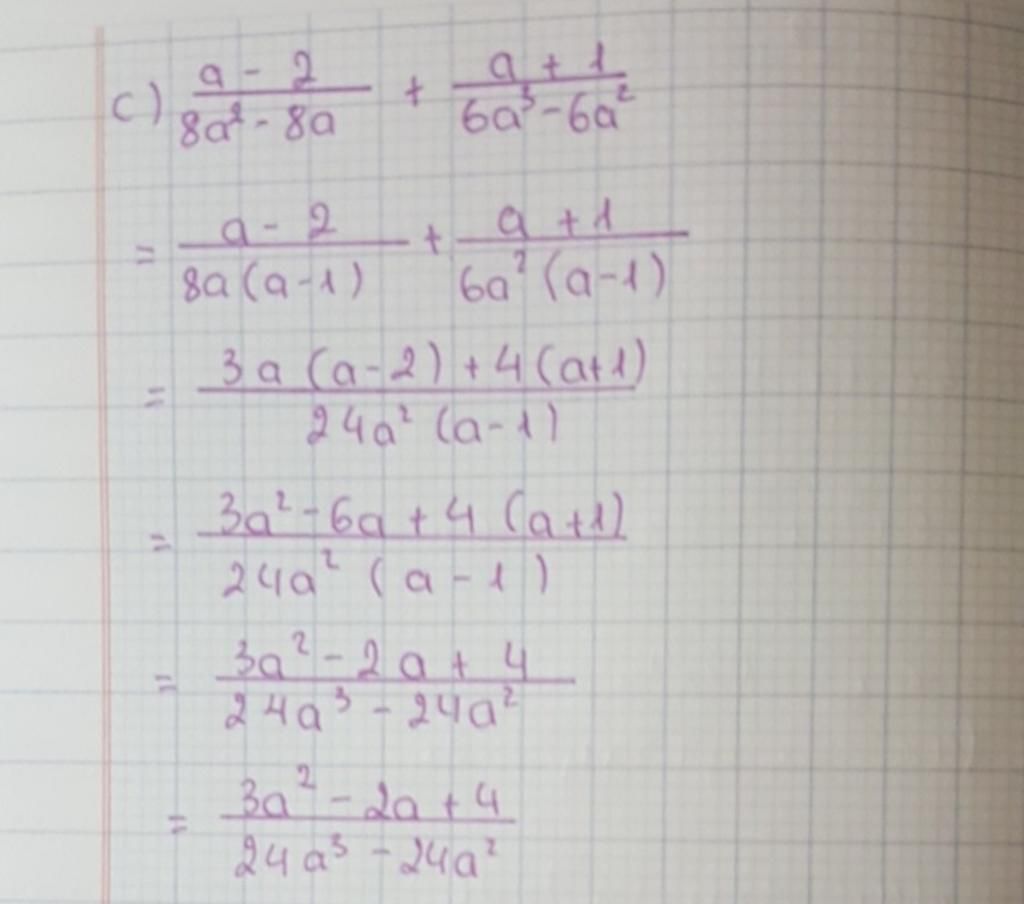 c) \frac{a - 2}{8a² - 8a} + \frac{a + 1}{6a³ - 6a²}
= \frac{a - 2}{8a(a - 1)} + \frac{a + 1}{6a² (a - 1)}
= \frac{3a (a - 2) + 4 (a + 1)}{24a² (a - 1)}
= \frac{3a² - 6a + 4 (a + 1)}{24a² (a - 1)}
= \frac{3a² - 2a + 4}{24a³ - 24a²}
= \frac{3a² - 2a + 4}{24a³ - 24a²}